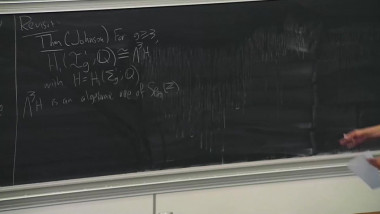 Revisit
Thm (Johnson) For g≥3,
H₁(I_g¹;Q) ≅ Λ³H
with H = H₁(Σ_g¹;Q)
Λ³H is an algebraic rep of Sp₂g(Z)